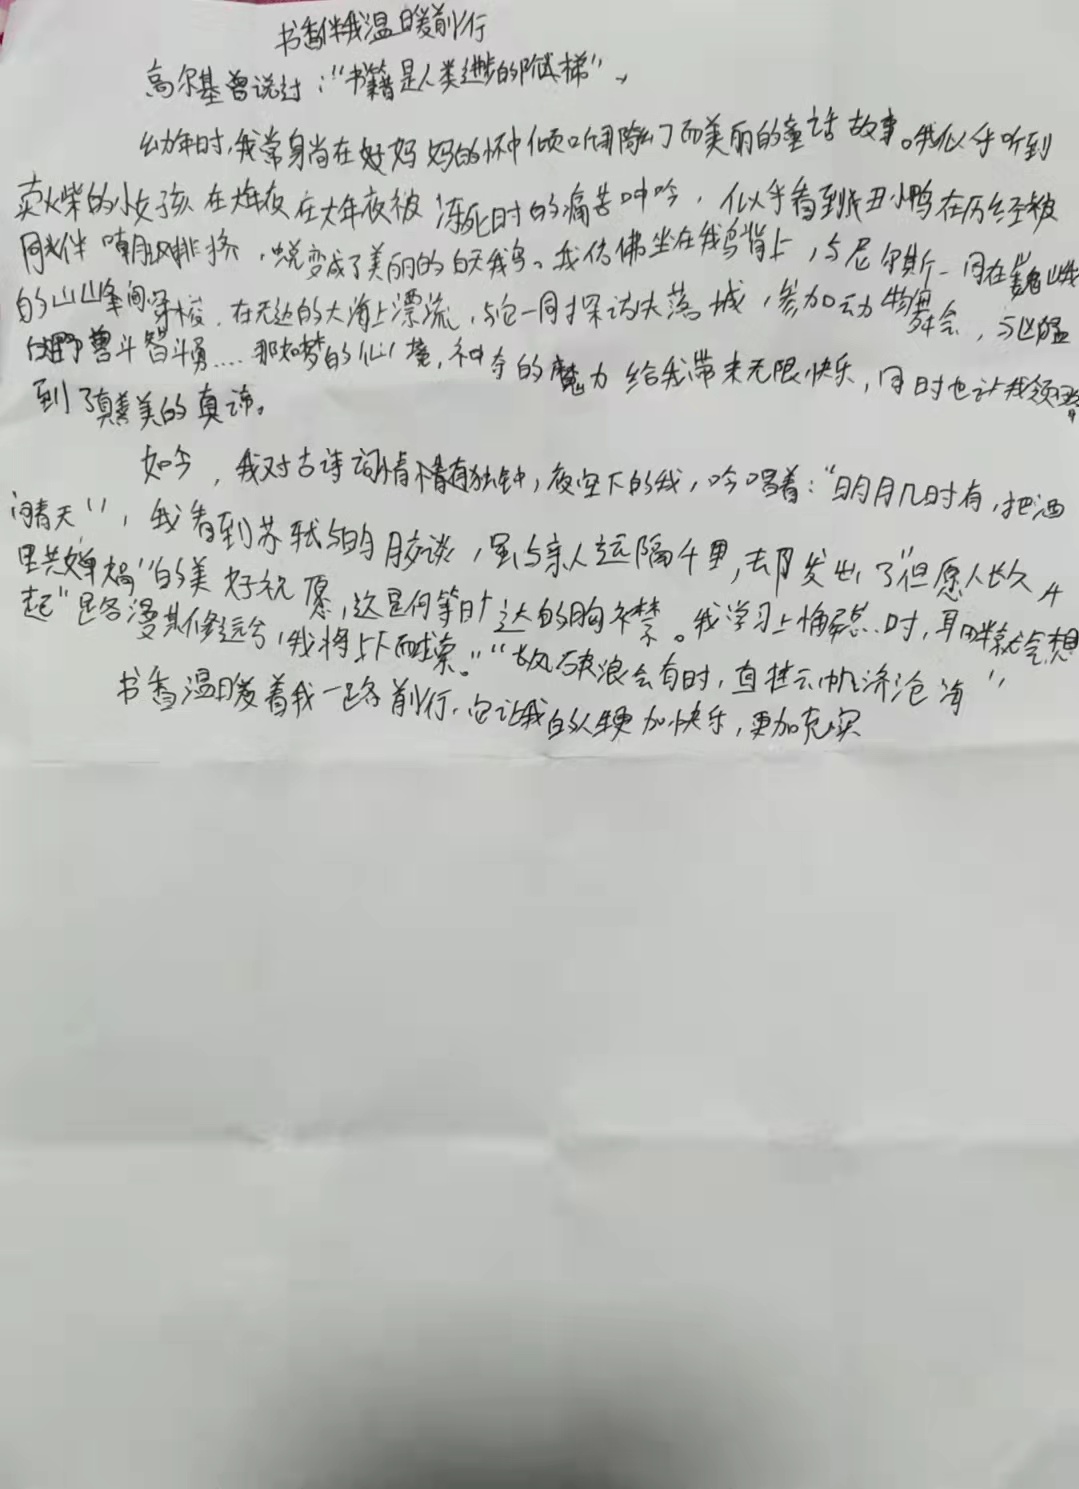 书香伴我温暖前行
高尔基曾说过："书籍是人类进步的阶梯"、
幼年时，我常身尚在妈妈的怀中倾听除了而美丽的童话故事。我似乎听到
卖火柴的小女孩在大年夜在大年夜被冻死时的痛苦呻吟，似乎看到丑小鸭在历经被
同伴嘲讽排挤，蜕变成了美丽的白天鹅。我仿佛坐在鹅背上，与尼尔斯一同在巍峨
的山峰间穿梭，在无边的大海上漂流，与它一同探访失落城，参加动物舞会，与凶猛
野兽斗智斗勇....那如梦的仙境，神奇的魔力给我带来无限快乐，同时也让我领略
到了真善美的真谛。
如今，我对古诗词情有独钟，夜空下的我，吟唱着："明月几时有，把酒
问青天"，我看到苏轼与明月交谈，虽与亲人远隔千里，却发出了"但愿人长久，千
里共婵娟"的美好祝愿，这是何等旷达的胸襟。我学习上懈怠..时，耳畔就会想
起"路漫漫其修远兮，我将上下而求索。""长风破浪会有时，直挂云帆济沧海"
书香温暖着我一路前行，它让我的人生更加快乐，更加充实